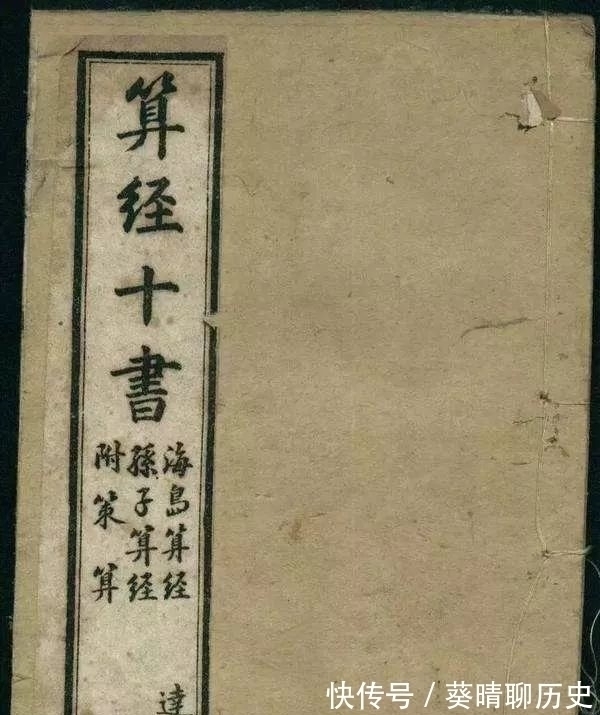 算经十書
海島算经
孫子算经
附策算
達
快传号 / 葵晴聊历史